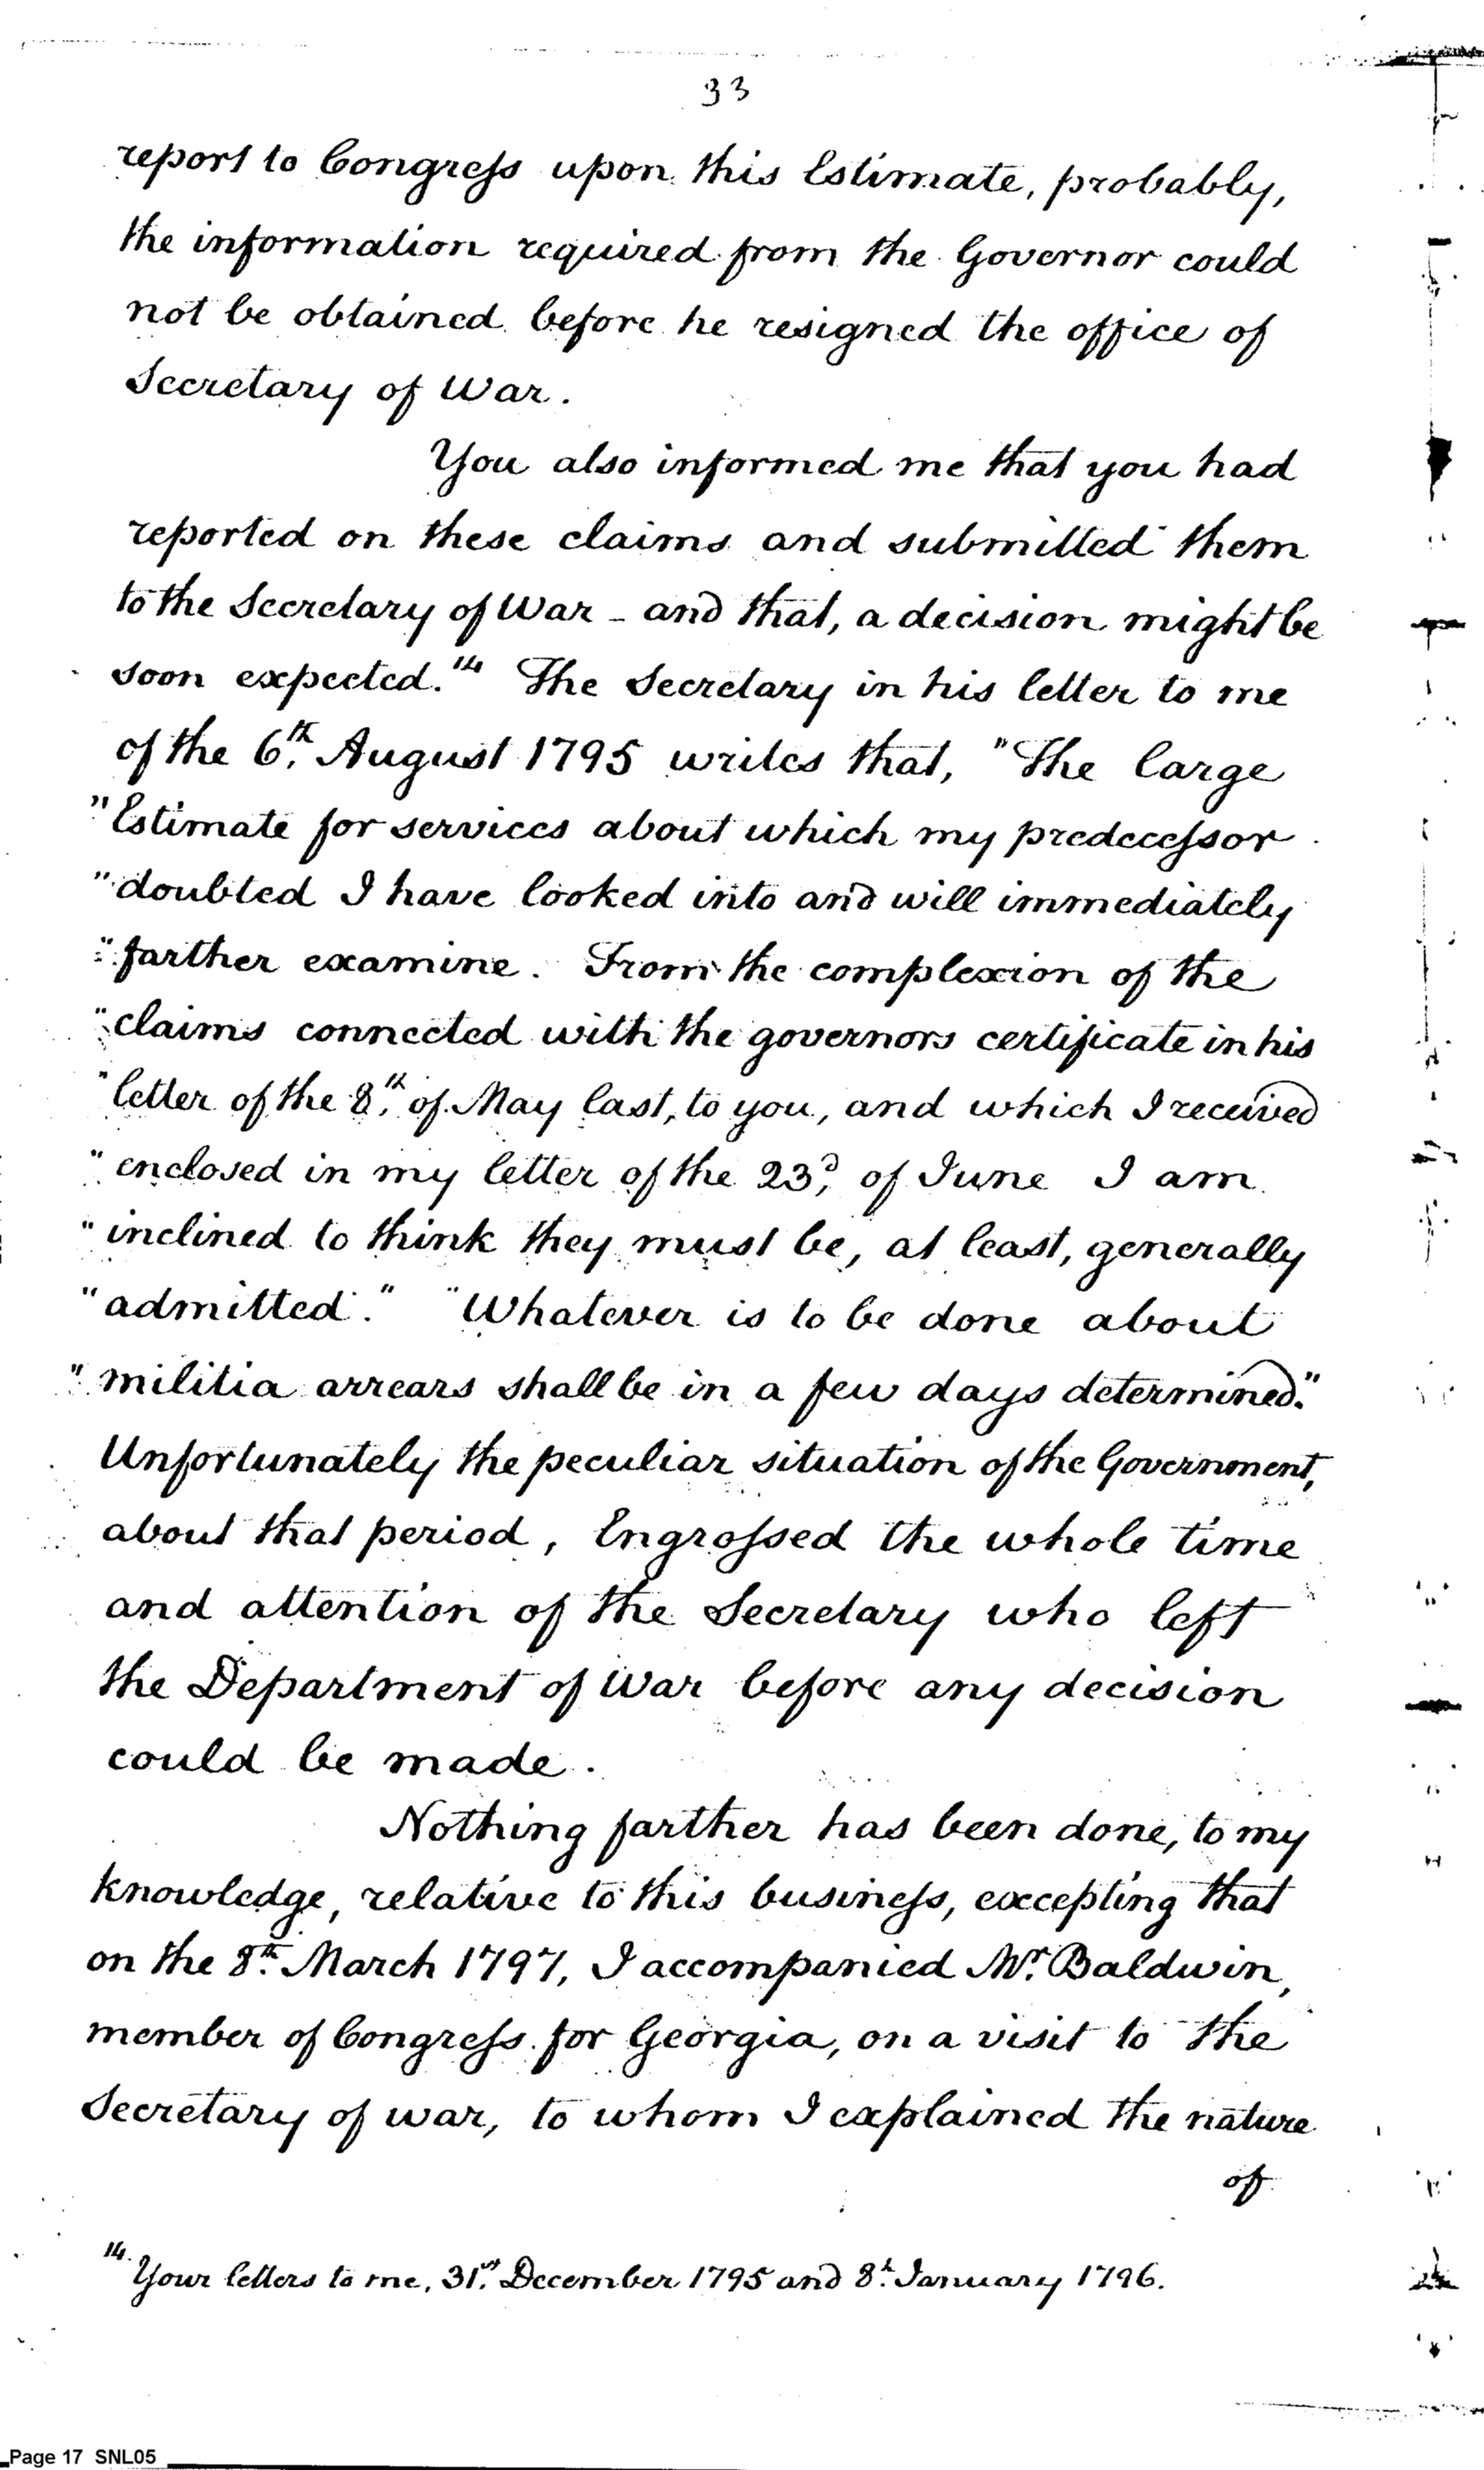 33
report to Congress upon this Estimate, probably,
the information required from the Governor could
not be obtained before he resigned the office of
Secretary of War.
You also informed me that you had
reported on these claims and submitted them
to the Secretary of War - and that, a decision might be
soon expected."14 The Secretary in his letter to me
of the 6th. August 1795 writes that, "The large
"Estimate for services about which my predecessor
"doubted I have looked into and will immediately
"farther examine. From the complexion of the
"claims connected with the governors certificate in his
"letter of the 8th. of May last, to you, and which I received
"enclosed in my letter of the 23d, of June I am
"inclined to think they must be, at least, generally
"admitted." "Whatever is to be done about
"militia arrears shall be in a few days determined."
Unfortunately the peculiar situation of the Government,
about that period, Engrossed the whole time
and attention of the Secretary who left
the Department of War before any decision
could be made.
Nothing farther has been done, to my
knowledge, relative to this business, excepting that
on the 8th. March 1797, I accompanied Mr. Baldwin,
member of Congress for Georgia, on a visit to the
Secretary of war, to whom I explained the nature
of
14. Your letters to me, 31st. December 1795 and 8th. January 1796.
Page 17 SNL05